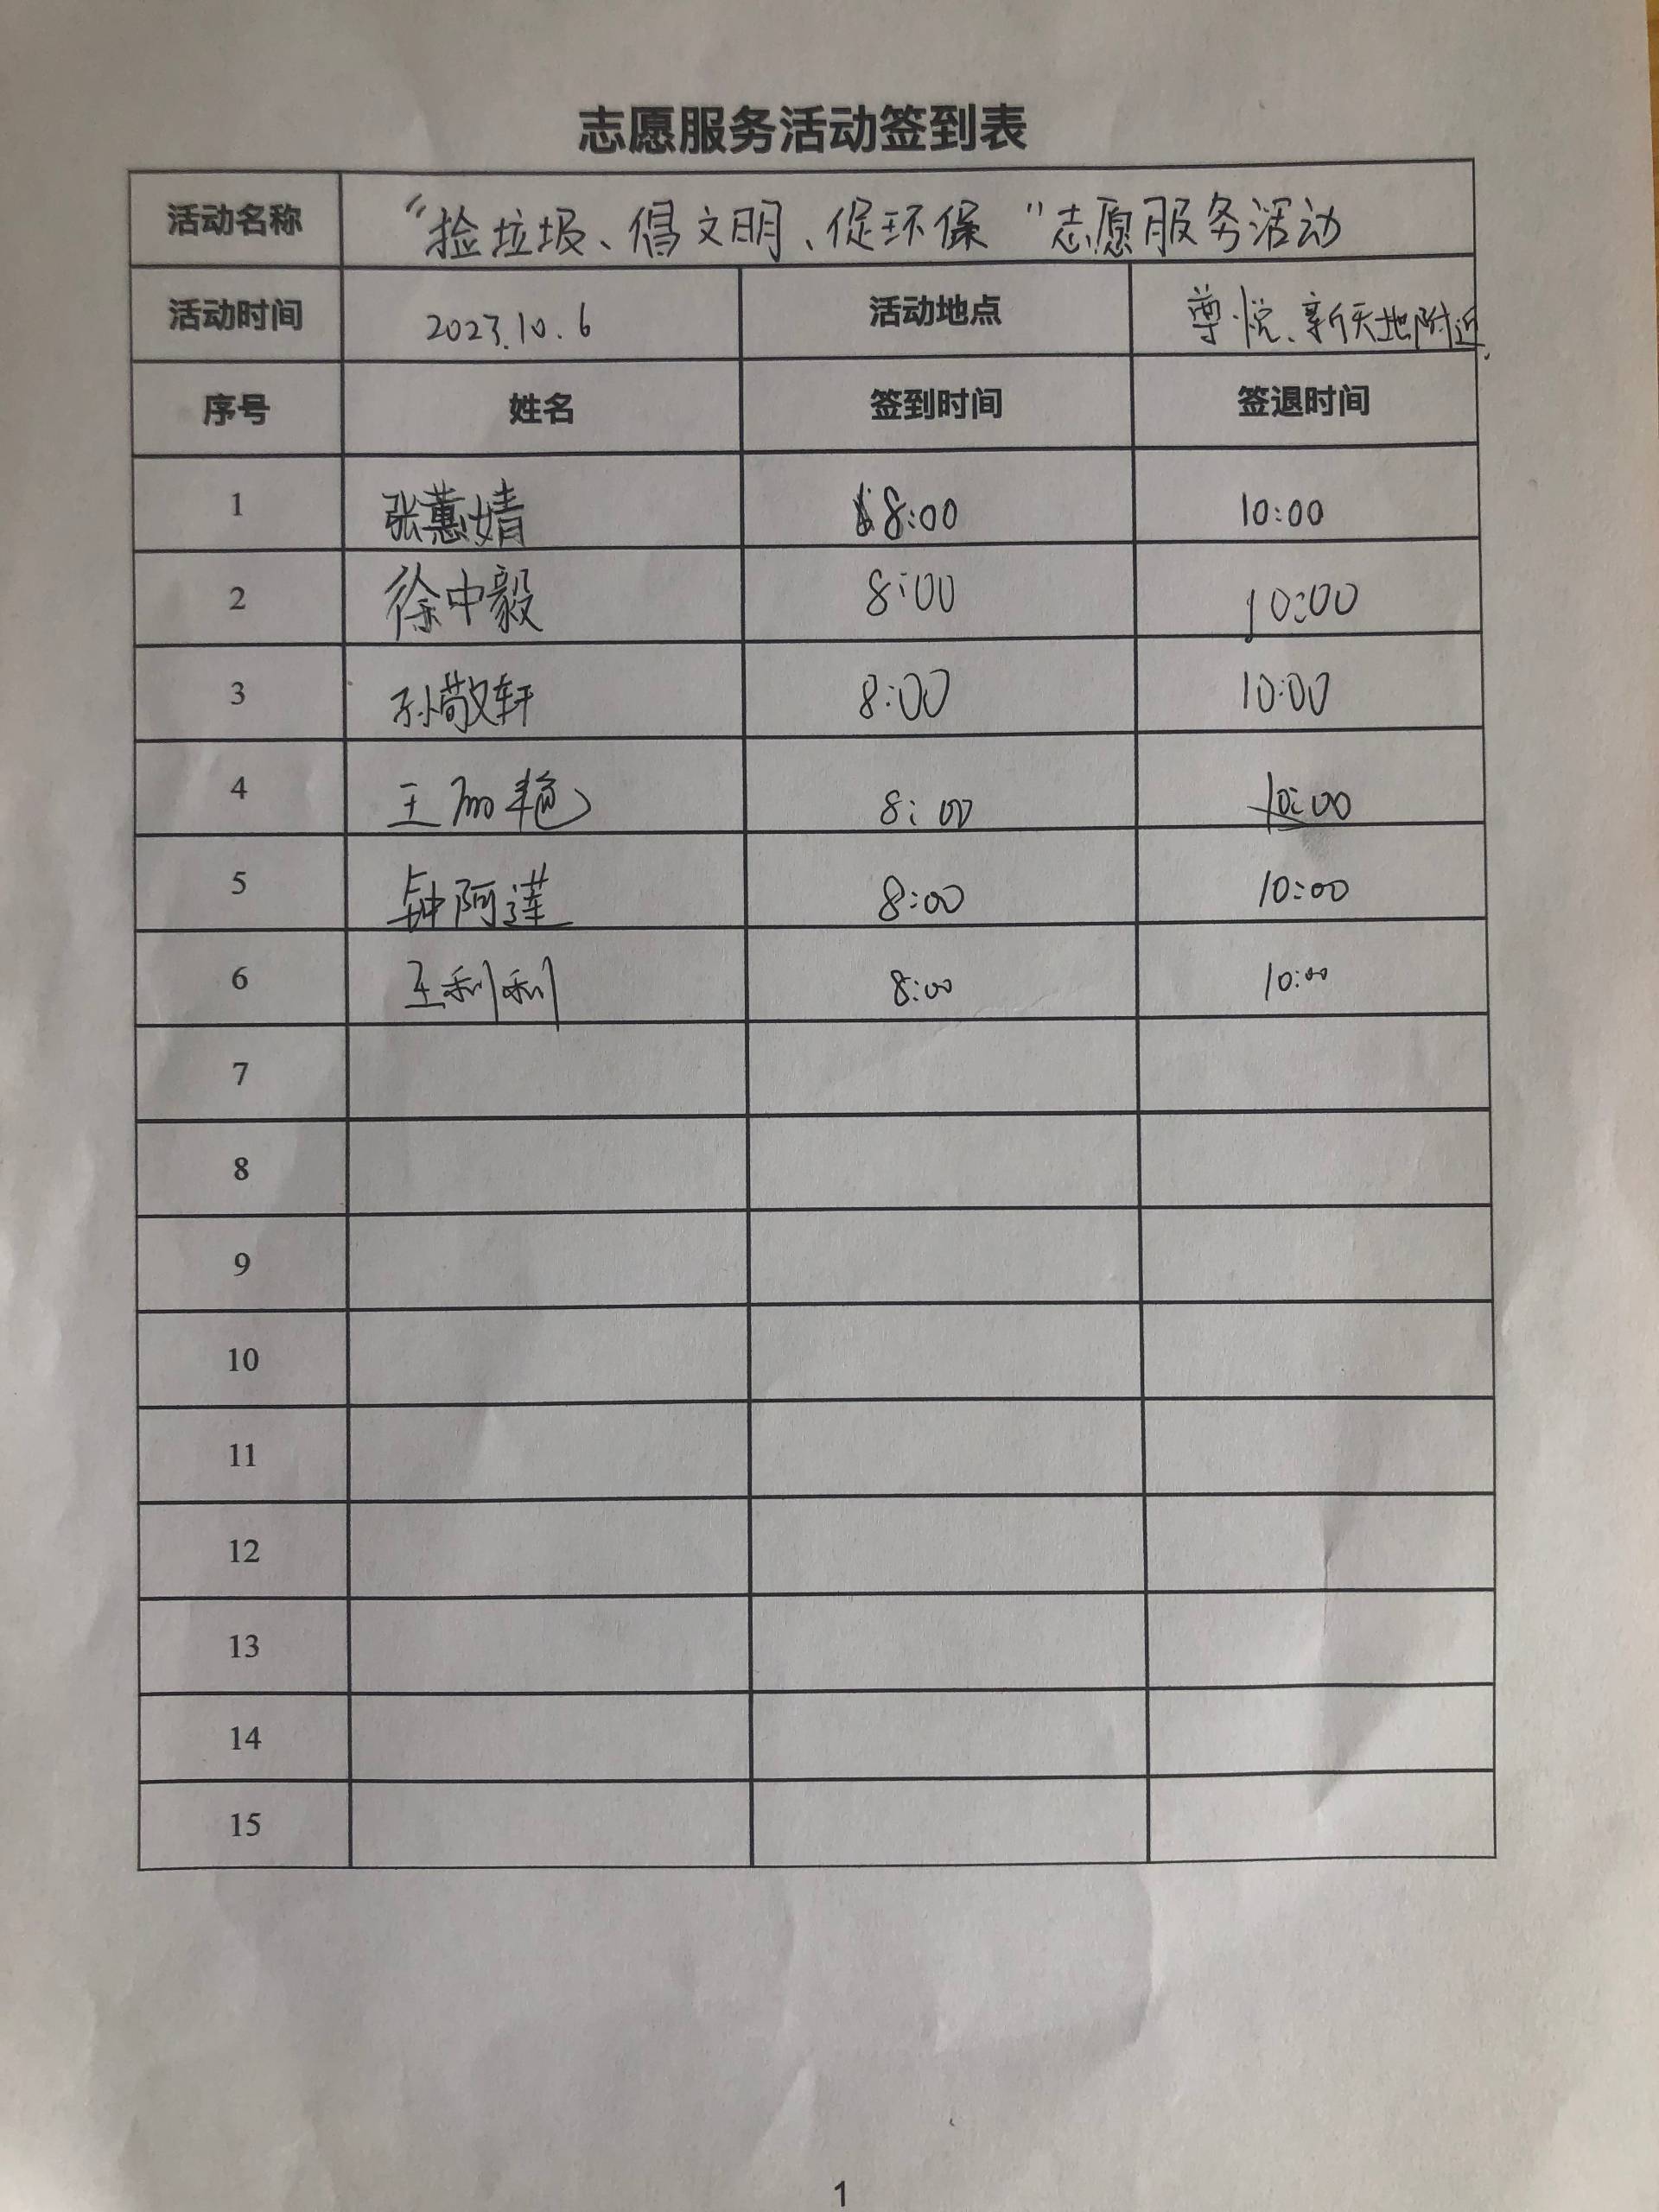 志愿服务活动签到表
活动名称 “捡垃圾、倡文明、促环保”志愿服务活动
活动时间 2023.10.6 活动地点 尊悦、新天地附近
序号 姓名 签到时间 签退时间
1 张蕙婧 8:00 10:00
2 徐中毅 8:00 10:00
3 孙敬轩 8:00 10:00
4 王丽艳 8:00 10:00
5 钟阿莲 8:00 10:00
6 王利利 8:00 10:00
7
8
9
10
11
12
13
14
15
1